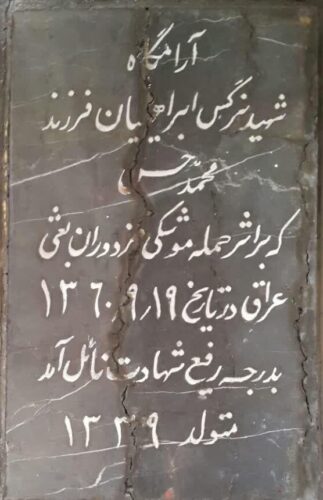 آرامگاه
شهید نرگس ابراهیمیان فرزند
محمد حسن
که بر اثر حمله موشکی مزدوران بعثی
عراق در تاریخ ۱۳۶۰٫۹٫۱۹
بدرجه رفیع شهادت نائل آمد
متولد ۱۳۳۹